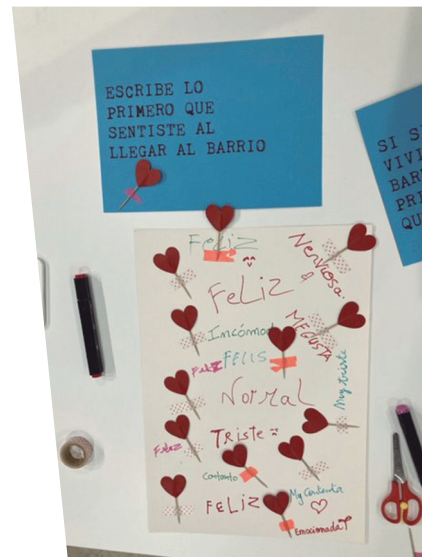 ESCRIBE LO
PRIMERO QUE
SENTISTE AL
LLEGAR AL BARRIO
SI
VIVI
BAR
PRI
QU
Feliz
Nerviosa
FeLiZ
ME GUSTA
Incómod
FELIS
Feliz
My triste
Normal
TRiSTe
Feliz
Contento
My Contenta
FeLiZ
Emocionada